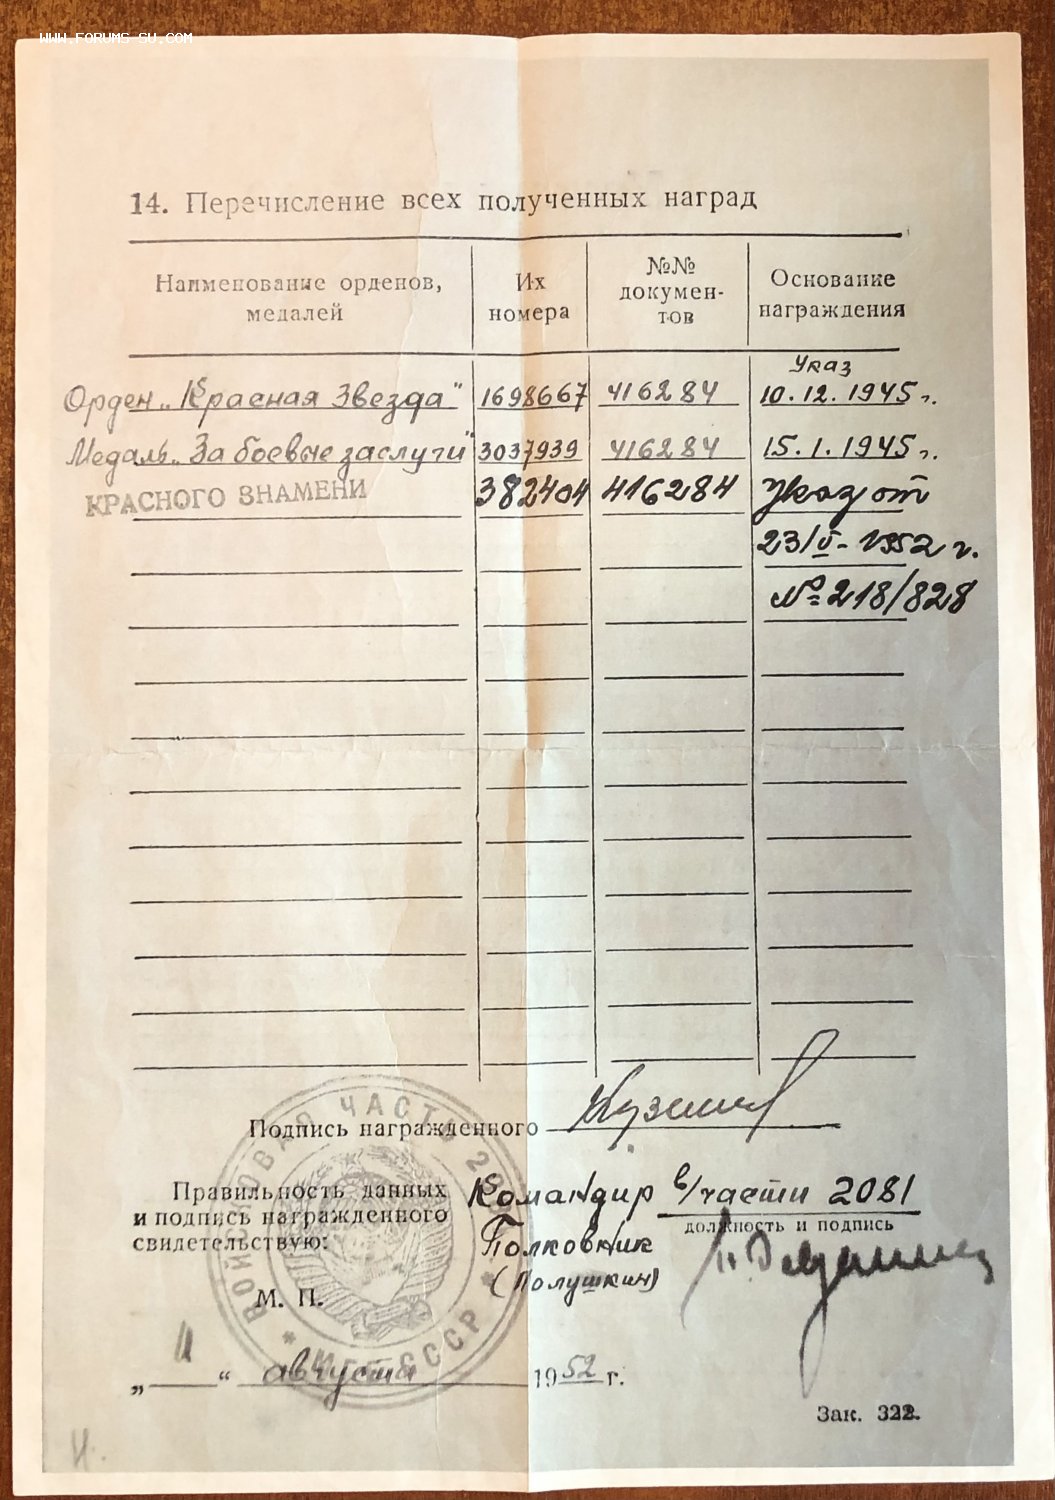 WWW.FORUMS-SU.COM
14. Перечисление всех полученных наград
Наименование орденов, медалей
Их номера
№№ докумен-тов
Основание награждения
Указ
Орден „Красная Звезда" 1698667 416284 10.12.1945 г.
Медаль „За боевые заслуги" 3037939 416284 15.1.1945 г.
КРАСНОГО ЗНАМЕНИ 382404 416284 Указ от
23/V-1952 г.
№ 218/828
ВОЙСКОВАЯ ЧАСТЬ
СССР
Подпись награжденного
Правильность данных
и подпись награжденного
свидетельствую:
Командир в/части 2081
должность и подпись
Полковник
(Полушкин)
М. П.
„11“ августа 1952 г.
Зак. 322.